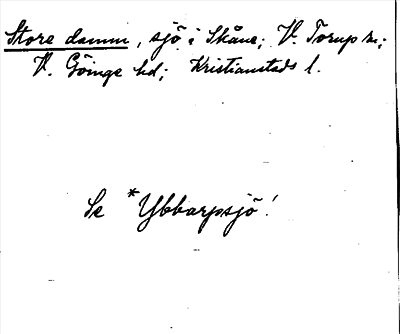 Store damm, sjö i Skåne; V. Torup sn;
V. Göinge hd; Kristianstads l.
Se *Ybbarpsjö!